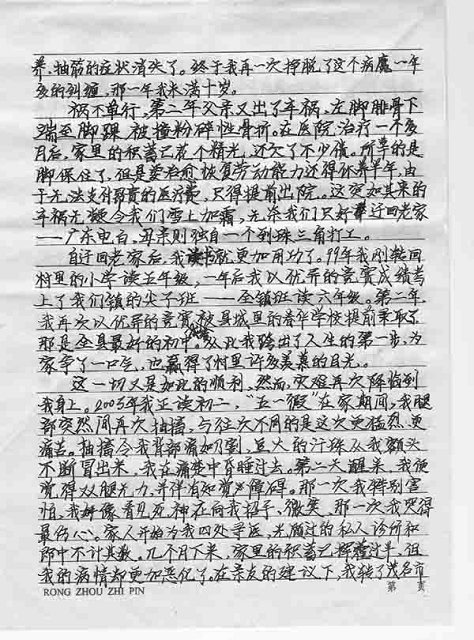 养,抽筋的症状消失了。终于我再一次挣脱了这个病魔一年
多的纠缠,那一年我未满十岁。
祸不单行,第二年父亲又出了车祸,左脚腓骨下
端至脚踝被撞粉碎性骨折。在医院治疗一个多
月后,家里的积蓄已花个精光,还欠了不少债。所幸的是
脚保住了,但是要治前恢复劳动能力还得休养半年,由
于无法支付昂贵的医疗费,只得提前出院。这突如其来的
车祸无疑令我们雪上加霜,无奈我们只好搬迁回老家
——广东电白,母亲则独自一个到珠三角打工。
自迁回老家后,我读书就更加用功了。99年我刚转回
村里的小学读五年级,一年后我以优异的竞赛成绩考
上了我们镇的尖子班——全镇班读六年级。第二年,
我再次以优异的竞赛被县城里的春华学校提前录取了,
那是全县最好的初中。从此我踏出了人生的第一步,为
家争了一口气,也赢得了村里许多羡慕的目光。
这一切又是如此的顺利,然而,灾难再次降临到
我身上。2003年我正读初二,"五一假"在家期间,我腿
部突然间再次抽搐,与往次不同的是这次更猛烈、更
痛苦。抽搐令我背部痛如刀割,豆大的汗珠从我额头
不断冒出来,我在痛楚中昏睡过去。第二天醒来,我便
觉得双腿无力,并伴有知觉障碍。那一次我特别害
怕,我好像看见死神在向我招手、微笑。那一次我哭得
最伤心。家人开始为我四处寻医,光顾过的私人诊所和
郎中不计其数。几个月下来,家里的积蓄已挥霍过半,但
我的病情却更加恶化了。在亲友的建议下,我转了茂名市
RONG ZHOU ZHI PIN 第 页